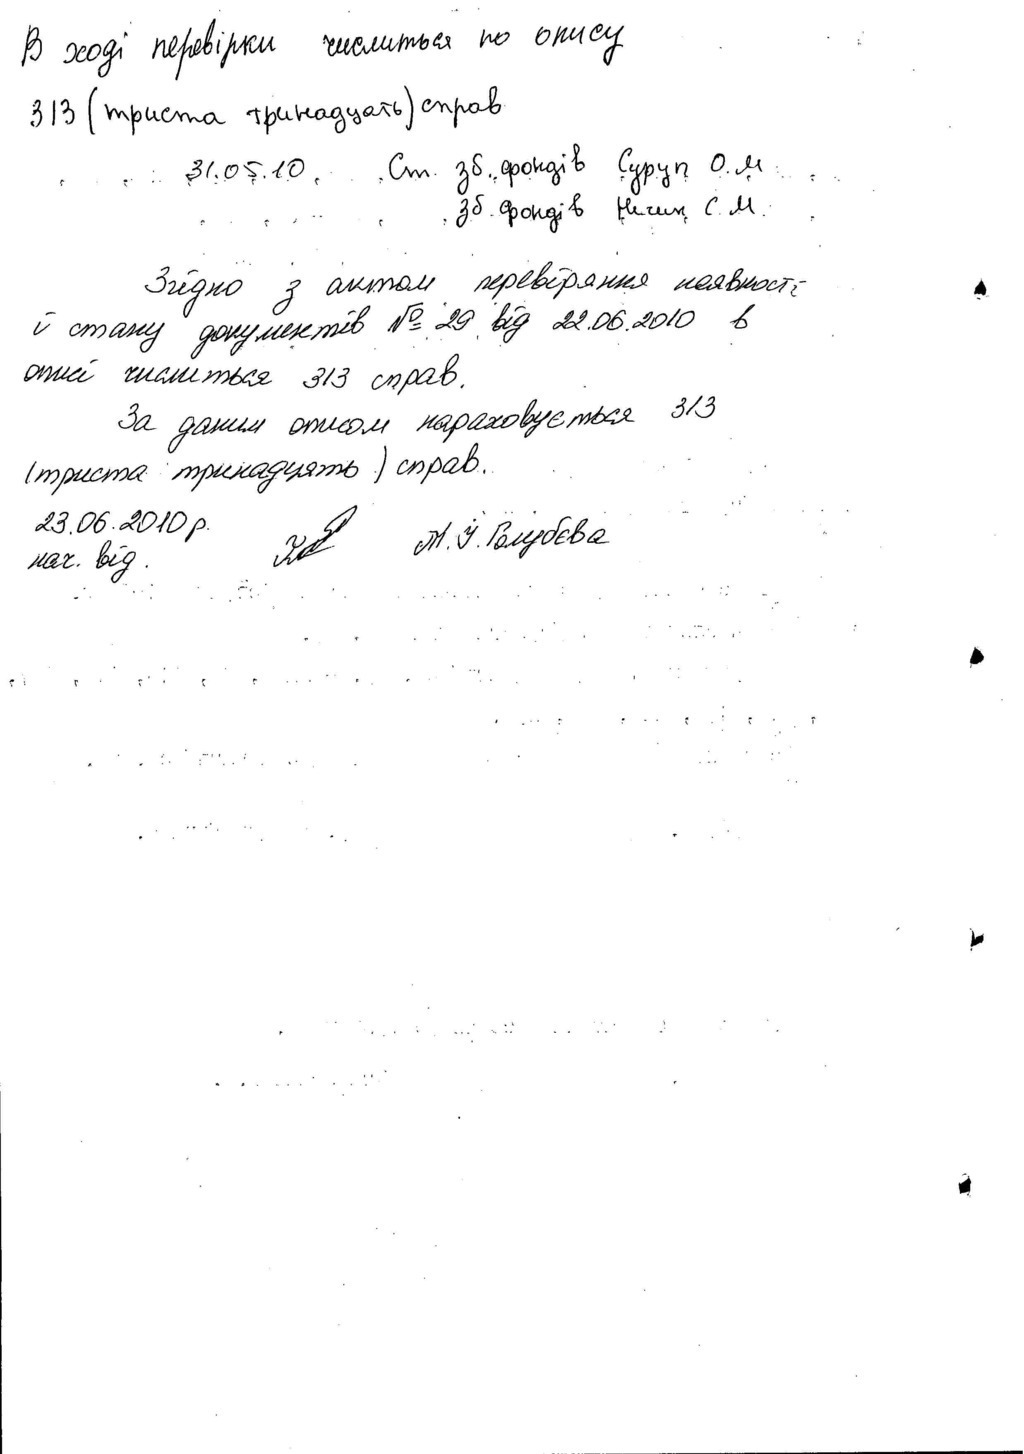 В ході перевірки числиться по опису
313 (триста тринадцать) справ
31.05.10 Ст. зб. фондів Суруп О.М
зб. фондів С.М.
Згідно з актом перевіряння наявності
й стану документів № 29 від 22.06.2010 в
описі числиться 313 справ.
За даним описом нараховується 313
(триста тринадцять) справ.
23.06.2010 р.
нач. від. М.У. Голубєва